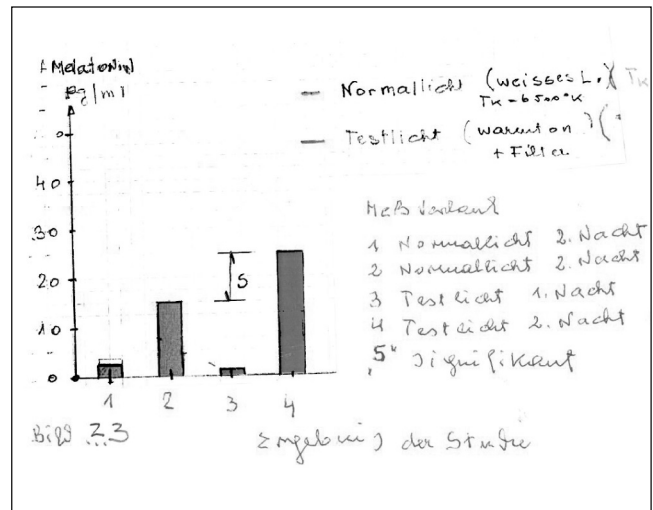 Melatonin
pg/ml
Normallicht (weisses L.)
TK = 6500°K
Testlicht (warmton
+ Filter
40
30
20
10
0
S
1 2 3 4
Meßverlauf
1 Normallicht 2. Nacht
2 Normallicht 2. Nacht
3 Testlicht 1. Nacht
4 Testlicht 2. Nacht
"S" Signifikant
Bild 23
Ergebnis der Studie